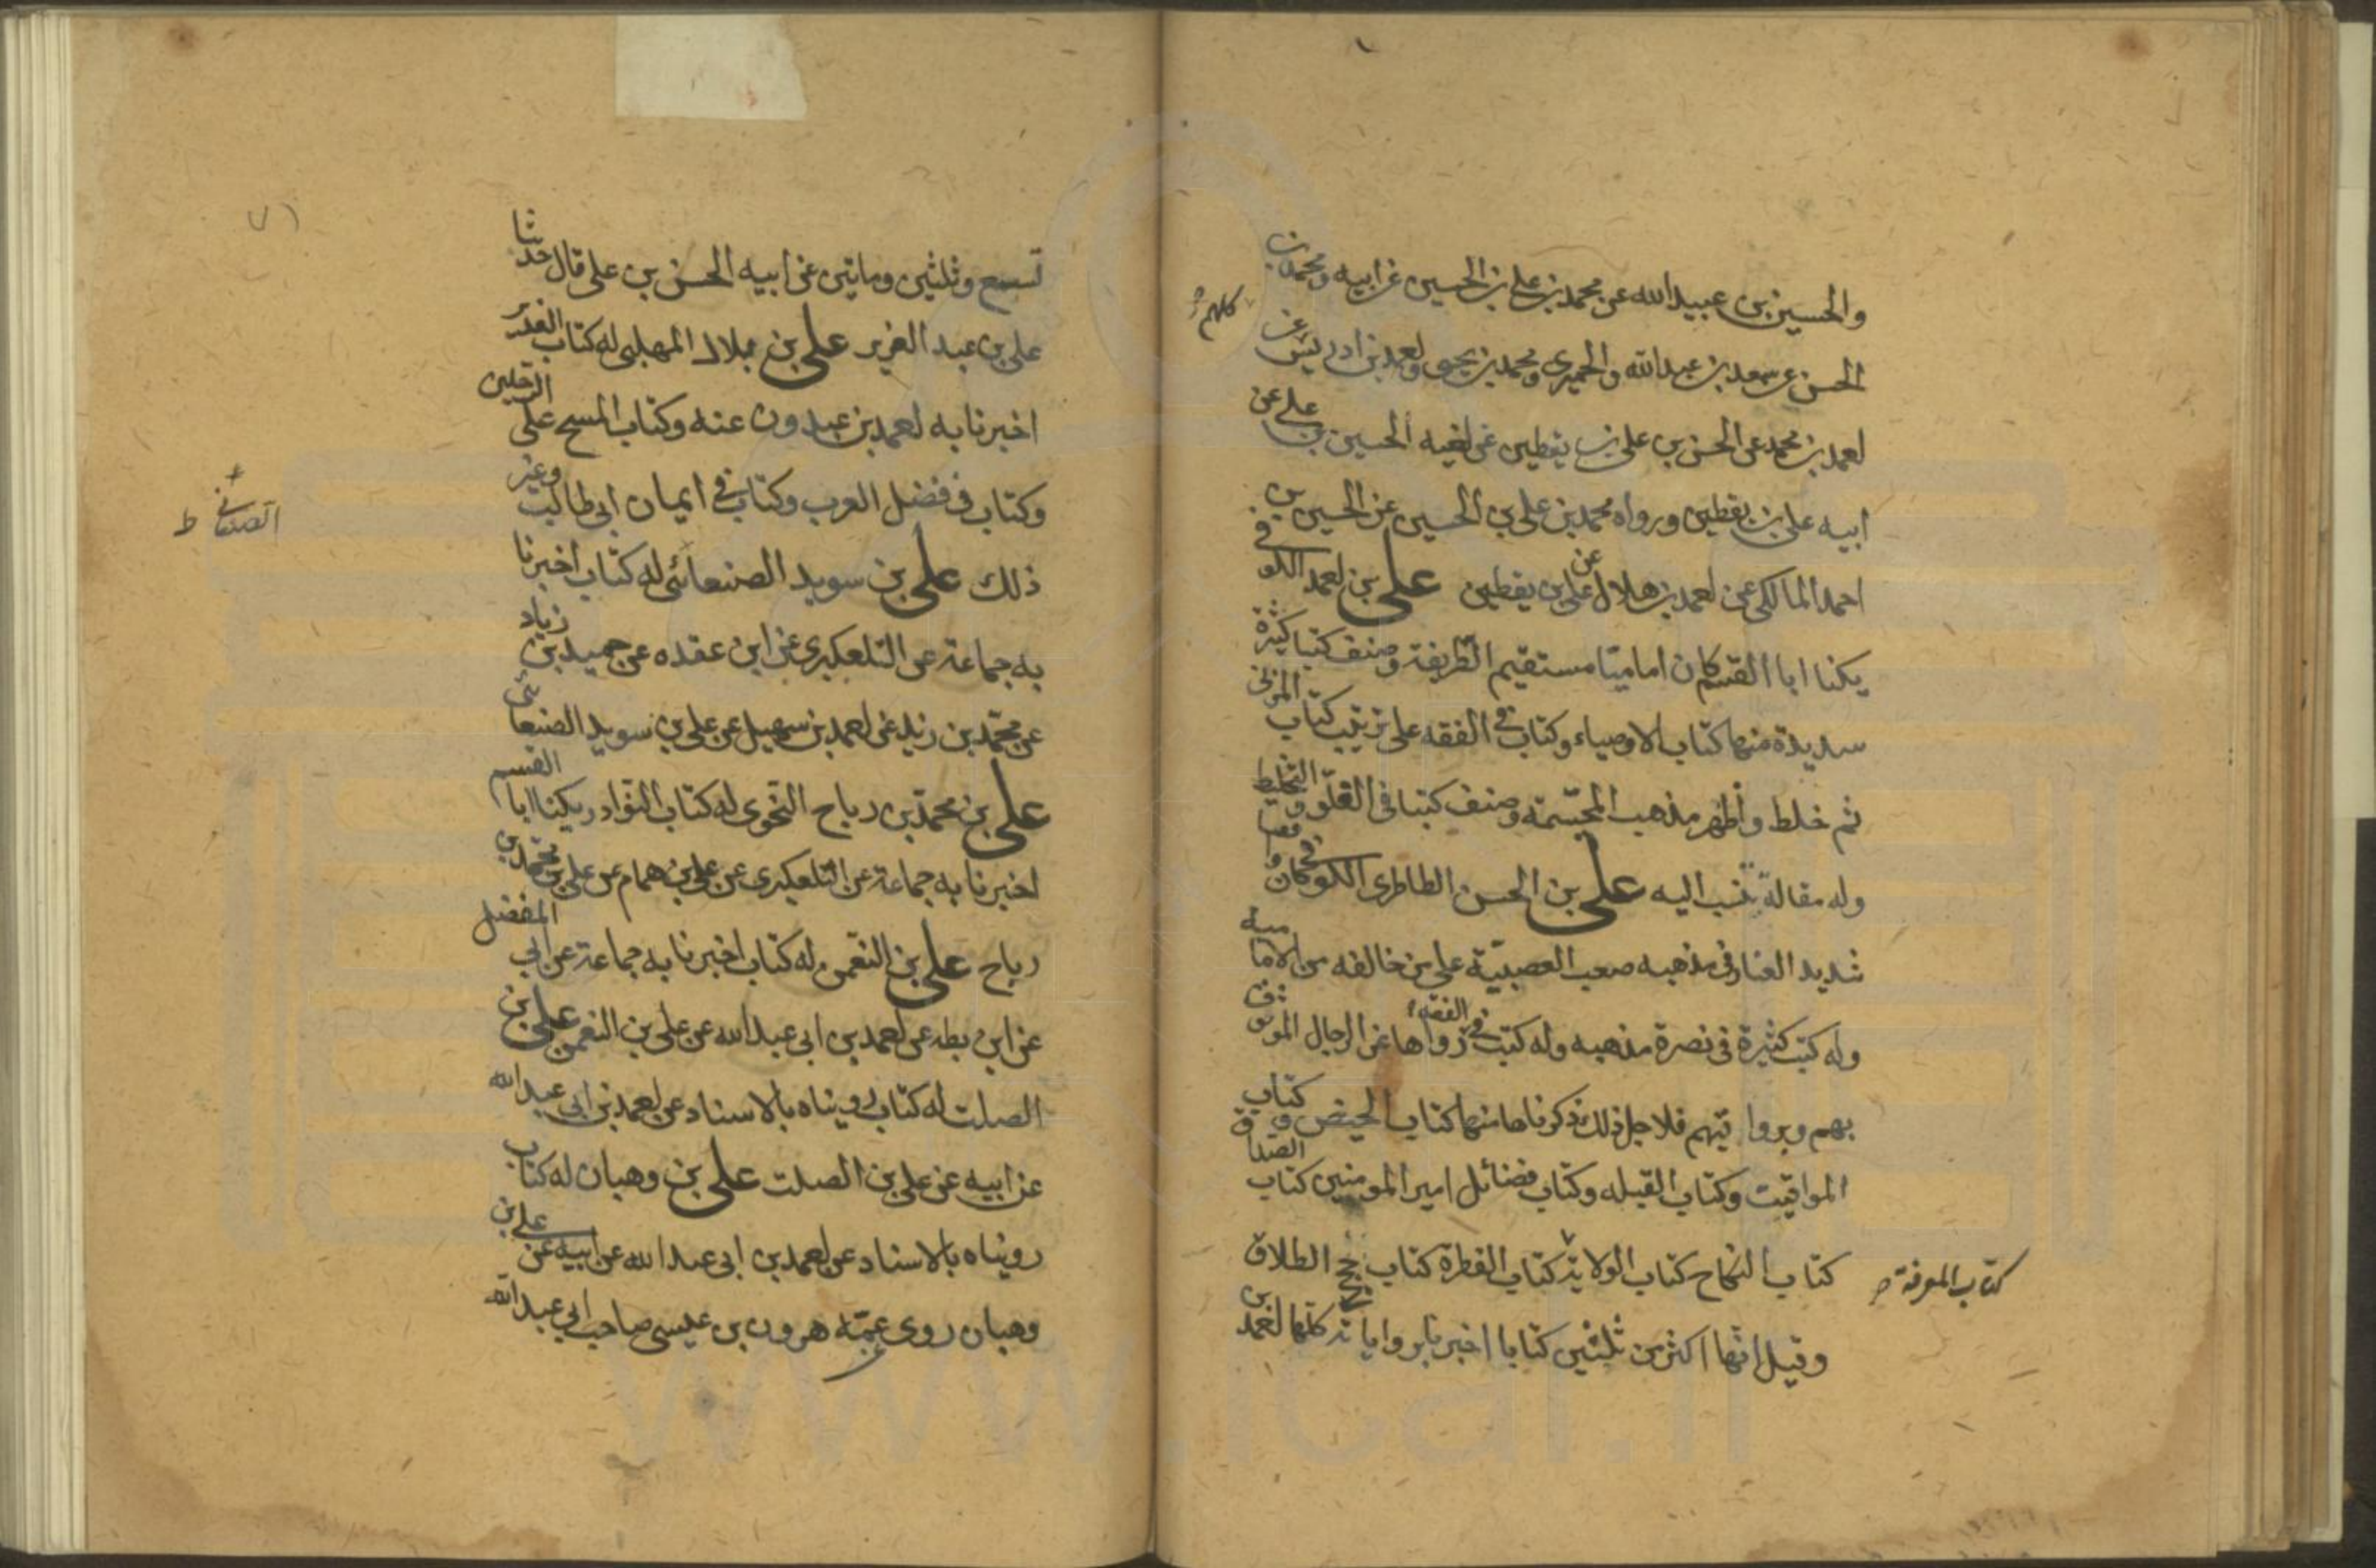 والحسين بن عبيد الله عن محمد بن علي بن الحسين عن ابيه ومحمد بن
الحسن عن سعد بن عبد الله والحميري ومحمد بن يحيى واحمد بن ادريس عن
كلهم
احمد بن محمد عن الحسن بن علي بن يقطين عن اخيه الحسين بن علي عن
ابيه علي بن يقطين ورواه محمد بن علي بن الحسين عن الحسين بن
احمد المالكي عن احمد بن هلال عن علي بن يقطين علي بن احمد الكوفي
يكنا ابا القسم كان اماميا مستقيم الطريقة وصنف كتبا كثيرة
سديدة منها كتاب الاوصياء وكتاب في الفقه على ترتيب كتاب المزني
ثم خلط واظهر مذهب المخمسة وصنف كتبا في الغلو والتخليط
وله مقالة تنسب اليه علي بن الحسن الطاطري الكوفي وكان واقفيا
شديد العناد في مذهبه صعب العصبية على من خالفه من الامامية
وله كتب كثيرة في نصرة مذهبه وله كتب في الفقه رواها عن الرجال الموثوق
بهم وبرواتيهم فلاجل ذلك ذكرناها منها كتاب الحيض وكتاب
المواقيت وكتاب القبله وكتاب فضائل امير المومنين كتاب الصداق
كتاب النكاح كتاب الولاية كتاب الفطرة كتاب حجج الطلاق
كتاب المعرفة
وقيل انها اكثر من ثلثين كتابا اخبرنا برواياته كلها احمد بن
تسع وثلثين وماتين عن ابيه الحسن بن علي قال حدثنا
علي بن عبد العزيز علي بن بلال المهلبي له كتاب الغدير
اخبرنا به احمد بن عبدون عنه وكتاب المسح على الرجلين
وكتاب في فضل العرب وكتاب في ايمان ابي طالب وغير
ذلك علي بن سويد الصنعائي له كتاب اخبرنا
الصنعاني ط
به جماعة عن التلعكبري عن ابن عقده عن حميد بن زياد
عن محمد بن زيد عن احمد بن سهيل عن علي بن سويد الصنعائي
علي بن محمد بن رياح النحوي له كتاب النوادر يكنا ابا القسم
اخبرنا به جماعة عن التلعكبري عن علي بن همام عن علي بن محمد بن
رياح علي بن النعمن له كتاب اخبرنا به جماعة عن ابي المفضل
عن ابن بطه عن احمد بن ابي عبد الله عن علي بن النعمن علي بن
الصلت له كتاب رويناه بالاسناد عن احمد بن ابي عبد الله
عن ابيه عن علي بن الصلت علي بن وهبان له كتاب
رويناه بالاسناد عن احمد بن ابي عبد الله عن ابيه عن علي بن
وهبان روى عن عمه هرون بن عيسى صاحب ابي عبد الله
www.ical.ir